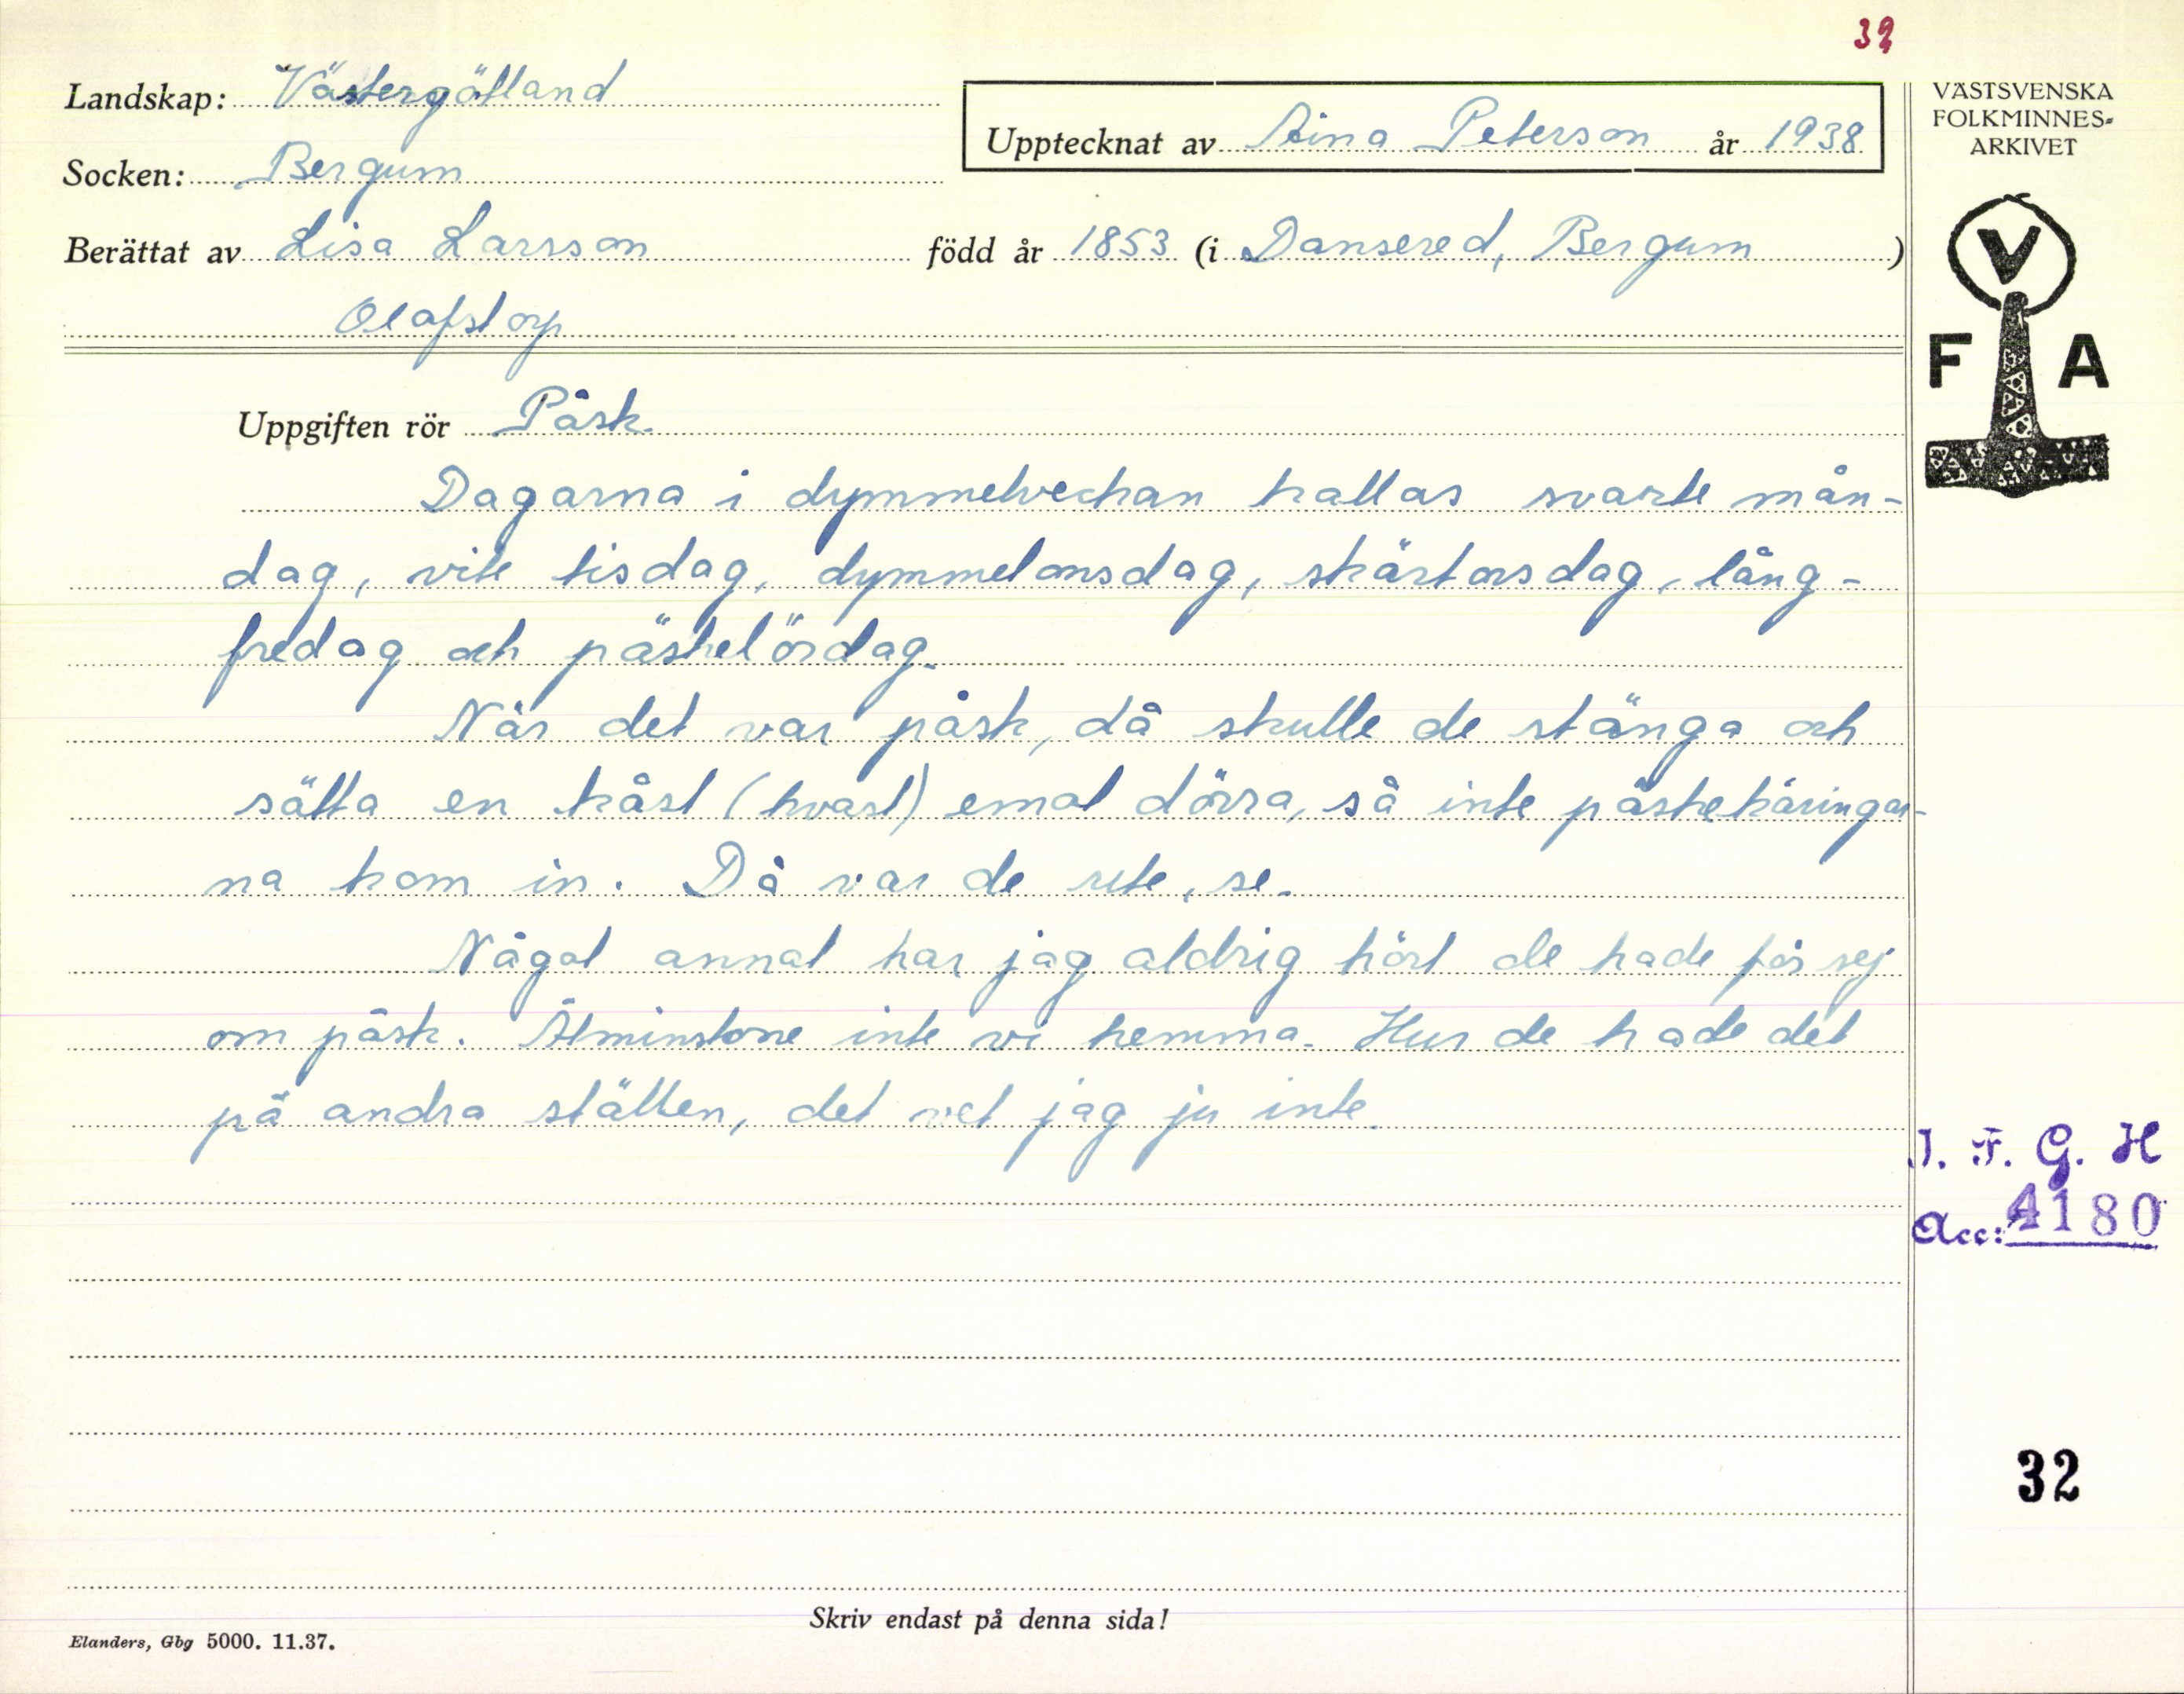 32
Landskap: Västergötland
Upptecknat av Aina Peterson år 1938
Socken: Bergum
Berättat av Lisa Larsson född år 1853 (i Dansered, Bergum)
Olofstorp
VÄSTSVENSKA
FOLKMINNES-
ARKIVET
V
F A
Uppgiften rör Påsk.
Dagarna i dymmelveckan kallas svarte mån-
dag, vite tisdag, dymmelonsdag, skärtorsdag, lång-
fredag och påskelördag.
När det var påsk, då skulle de stänga och
sätta en kåst (kvast) emot dörra, så inte påskekäringar-
na kom in. Då var de ute, se.
Något annat har jag aldrig hört de hade för sej
om påsk. Åtminstone inte vi hemma. Hur de hade det
på andra ställen, det vet jag ju inte.
I. F. G. H
Acc: 4180
32
Skriv endast på denna sida!
Elanders, Gbg 5000. 11.37.